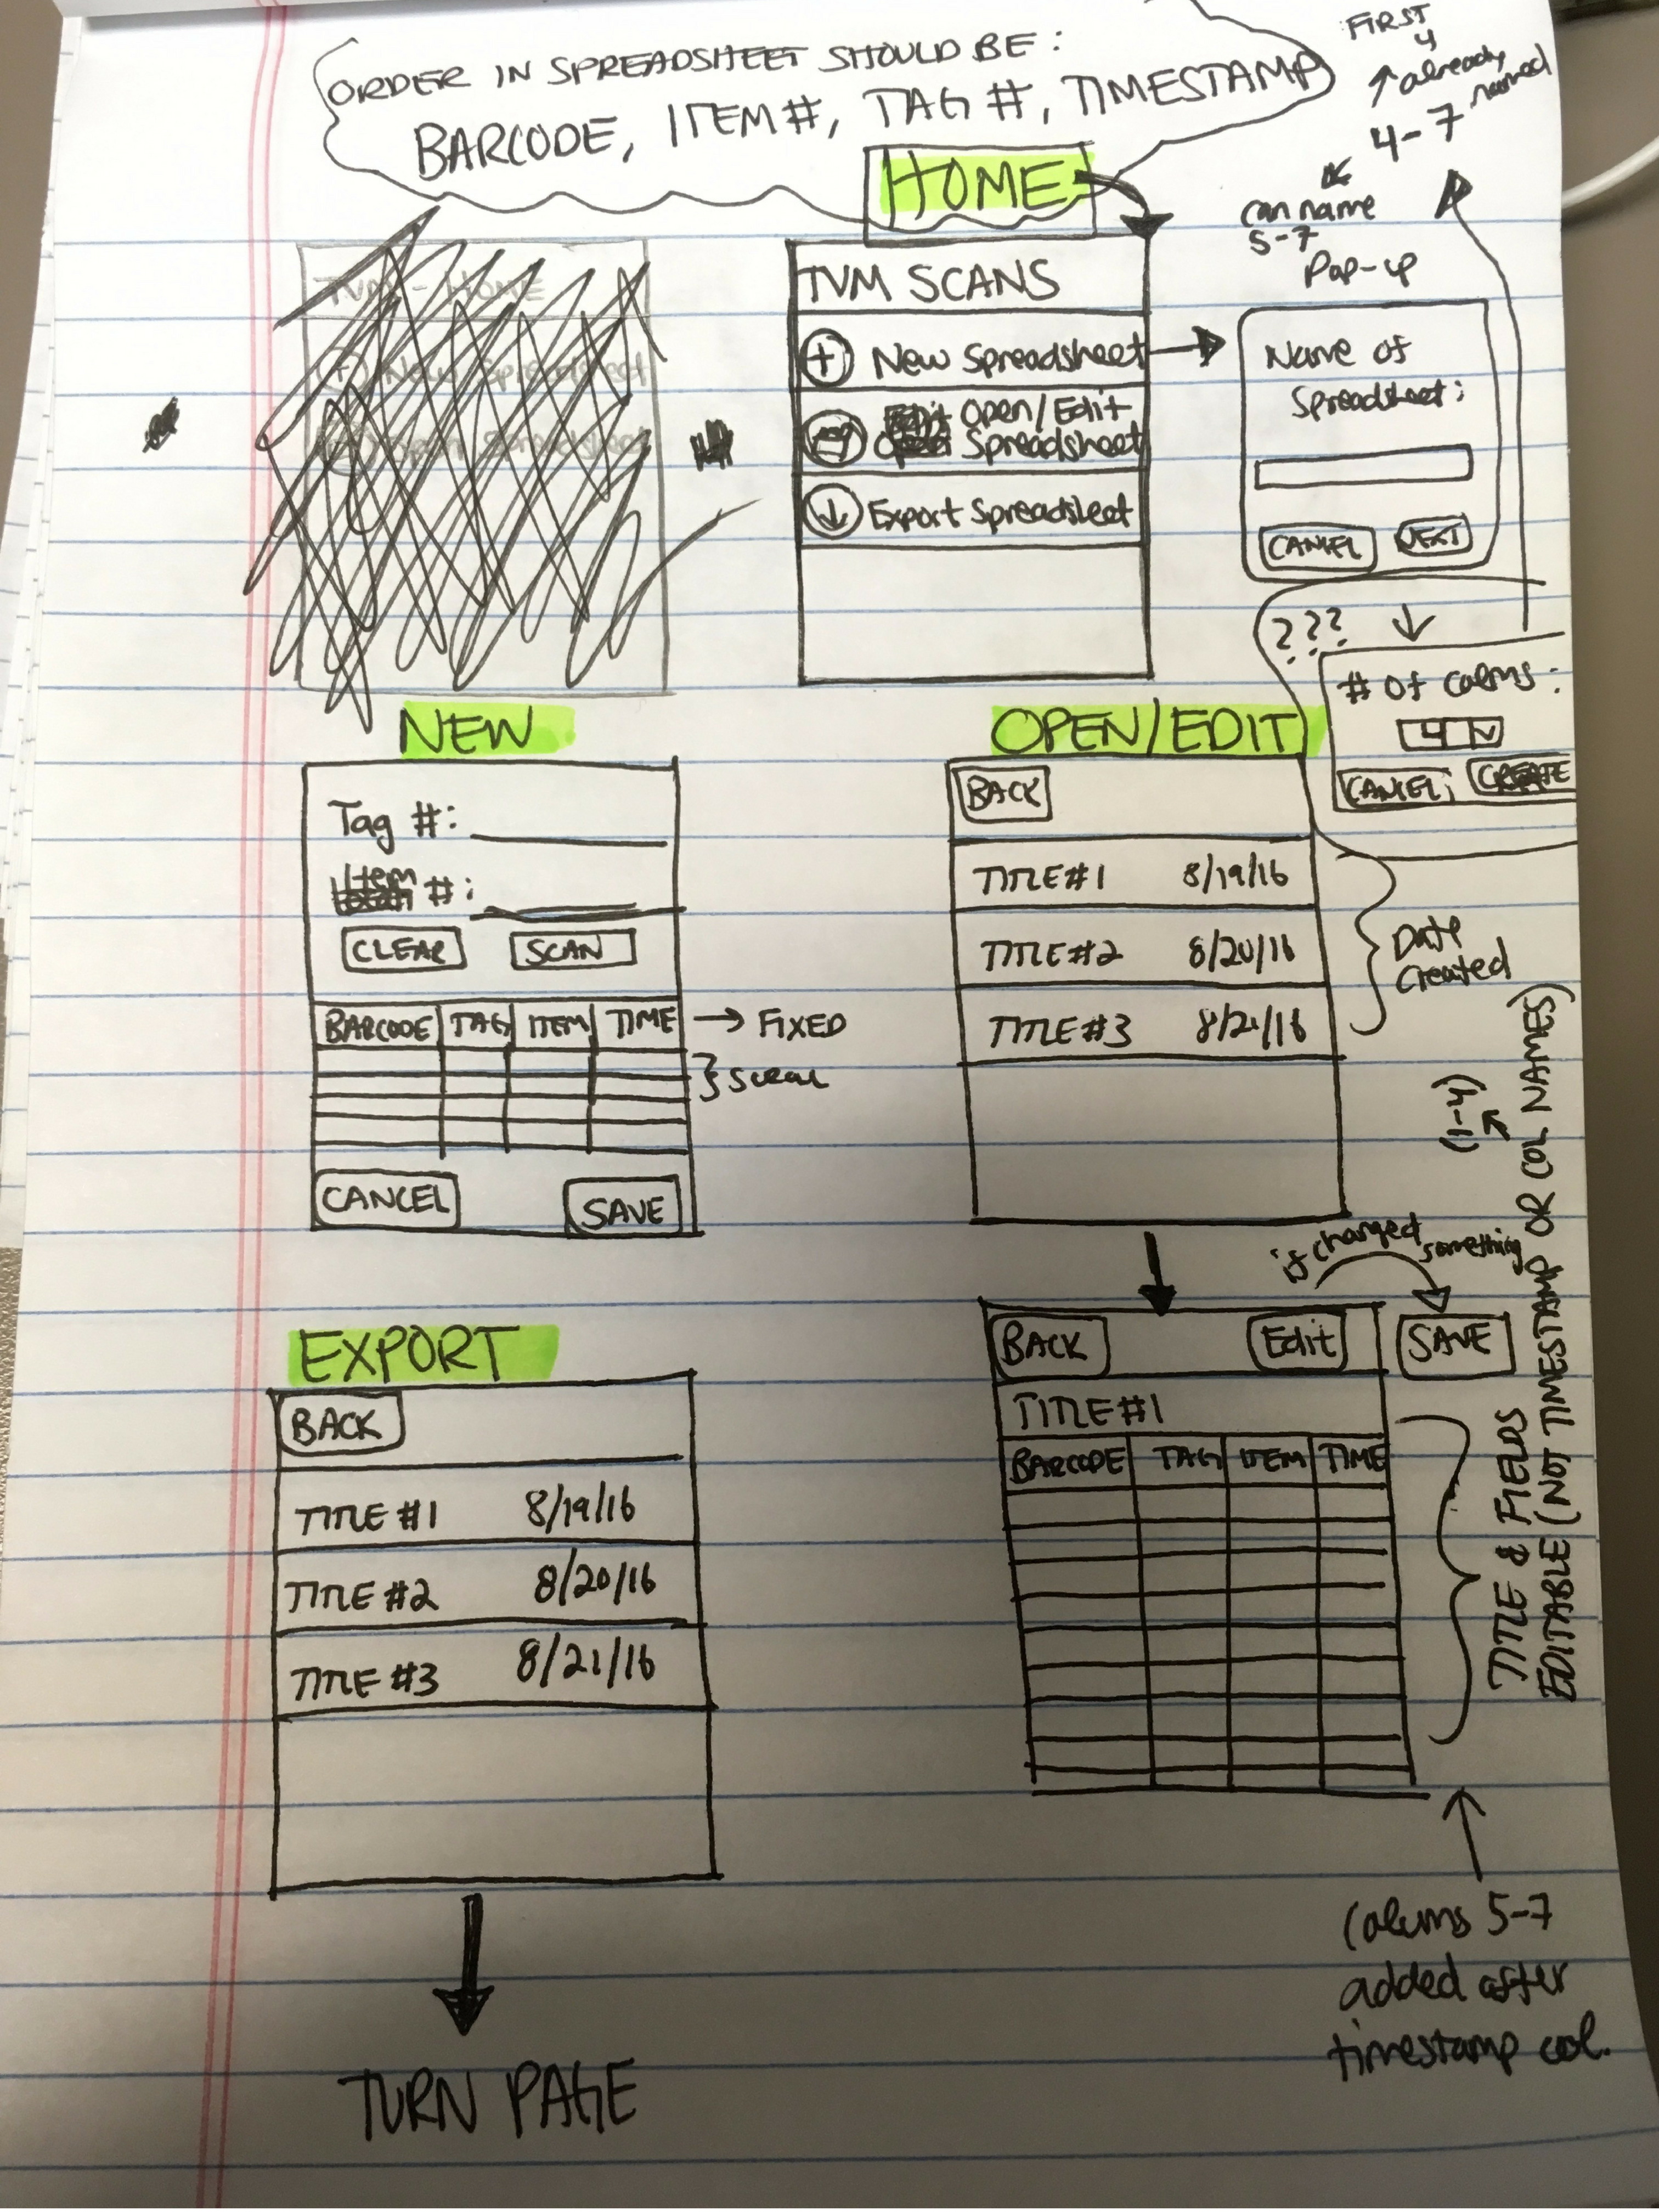 ORDER IN SPREADSHEET SHOULD BE:
BARCODE, ITEM#, TAG #, TIMESTAMP
FIRST
4
already
named
4-7
can name
5-7
HOME
TVM - HOME
New Spreadsheet
Open Spreadsheet
TVM SCANS
+ New Spreadsheet
Open/Edit
Spreadsheet
Export Spreadsheet
Pop-up
Name of
Spreadsheet:
CANCEL NEXT
???
# of colms:
4
CANCEL CREATE
NEW
Tag #:
Item #:
CLEAR SCAN
BARCODE TAG ITEM TIME → FIXED
Scroll
CANCEL SAVE
OPEN/EDIT
BACK
TITLE#1 8/19/16
TITLE#2 8/20/16
TITLE#3 8/21/16
Date
Created
if changed something
BACK Edit SAVE
TITLE#1
BARCODE TAG ITEM TIME
TITLE & FIELDS
EDITABLE (NOT TIMESTAMP OR COL NAMES)
(1-4)
Colums 5-7
added after
timestamp col.
EXPORT
BACK
TITLE #1 8/19/16
TITLE #2 8/20/16
TITLE #3 8/21/16
TURN PAGE